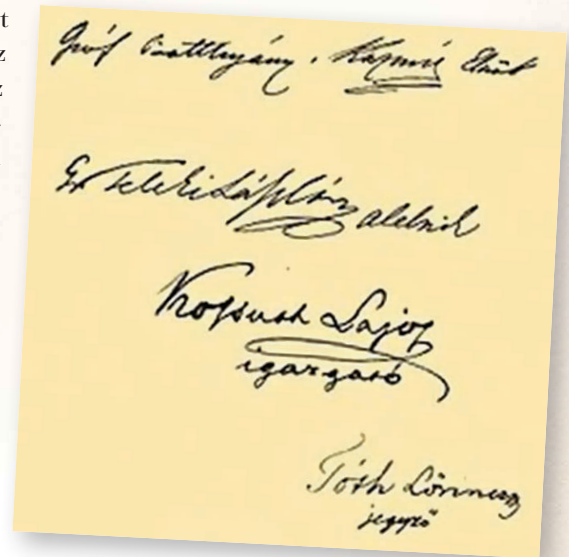 t
z
z
Gróf Batthyány Kázmér Elnök
Gr Teleki László alelnök
Kossuth Lajos
igazgató
Tóth Lőrincz
jegyző